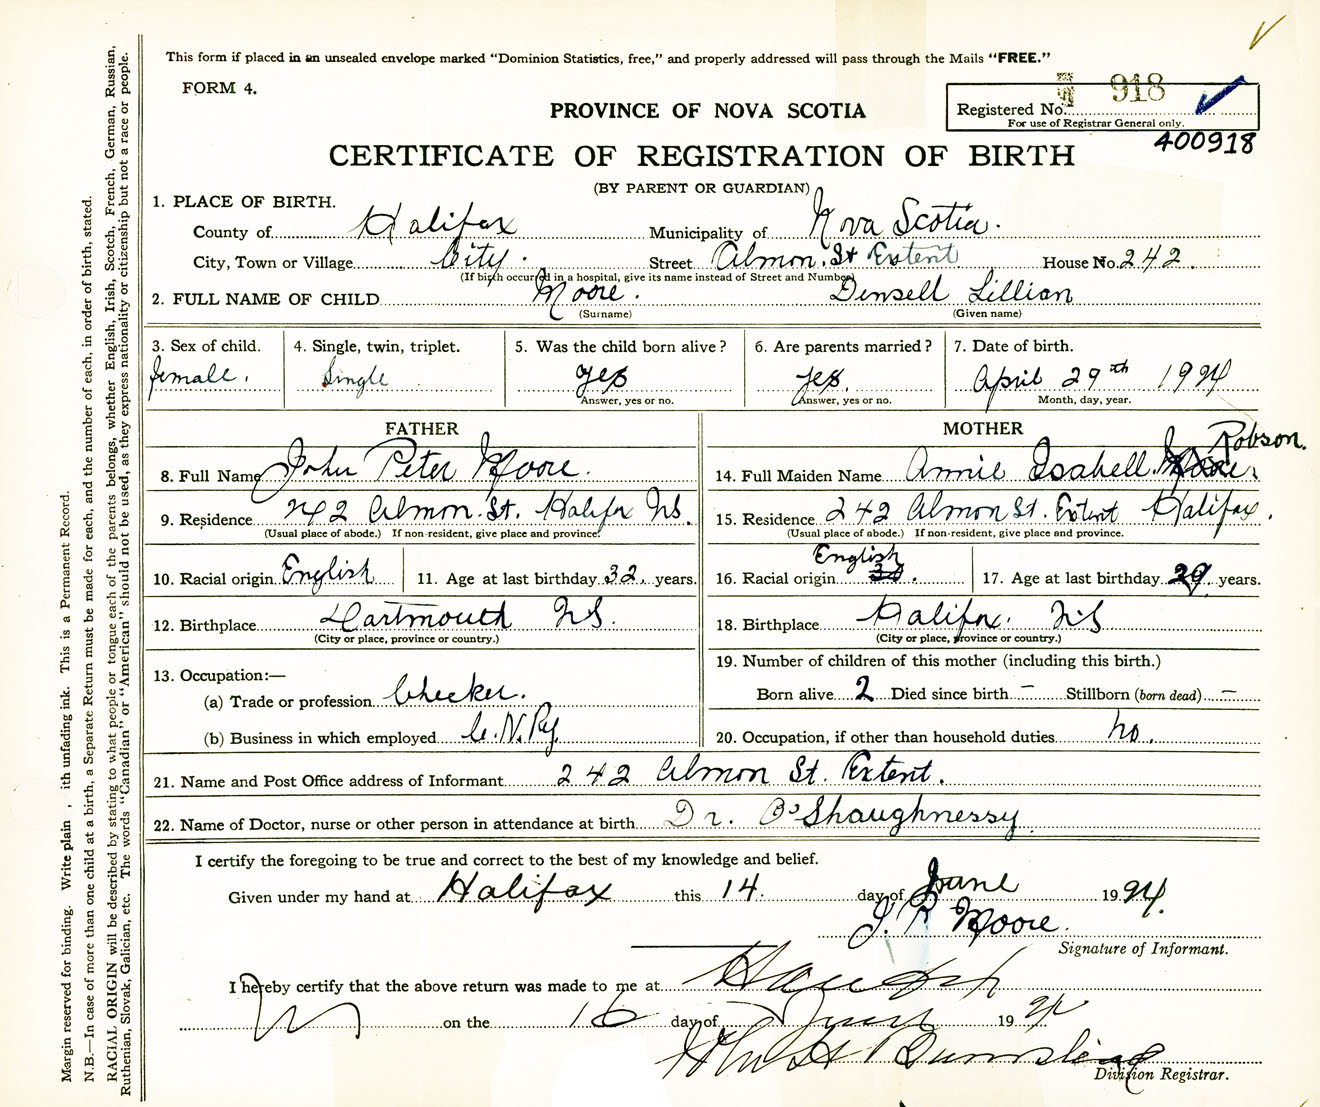 This form if placed in an unsealed envelope marked “Dominion Statistics, free,” and properly addressed will pass through the Mails “FREE.”
FORM 4.
918
PROVINCE OF NOVA SCOTIA
Registered No.
For use of Registrar General only.
400918
CERTIFICATE OF REGISTRATION OF BIRTH
(BY PARENT OR GUARDIAN)
1. PLACE OF BIRTH.
County of Halifax Municipality of Nova Scotia.
City, Town or Village City. Street Almon. St Extent House No. 242
(If birth occurred in a hospital, give its name instead of Street and Number)
2. FULL NAME OF CHILD Moore. Densell Lillian
(Surname) (Given name)
3. Sex of child. 4. Single, twin, triplet. 5. Was the child born alive? 6. Are parents married? 7. Date of birth.
female. Single yes yes. April 29th 1924
Answer, yes or no. Answer, yes or no. Month, day, year.
FATHER
8. Full Name John Peter Moore.
9. Residence 242 Almon. St. Halifax N.S.
(Usual place of abode.) If non-resident, give place and province.
10. Racial origin English 11. Age at last birthday 32. years.
12. Birthplace Dartmouth N.S.
(City or place, province or country.)
13. Occupation:—
(a) Trade or profession Checker.
(b) Business in which employed C.N.Ry
MOTHER
Robson.
14. Full Maiden Name Annie Isabell
15. Residence 242 Almon St. Extent Halifax.
(Usual place of abode.) If non-resident, give place and province.
16. Racial origin English 17. Age at last birthday 29 years.
18. Birthplace Halifax. N.S
(City or place, province or country.)
19. Number of children of this mother (including this birth.)
Born alive 2 Died since birth – Stillborn (born dead) –
20. Occupation, if other than household duties no.
21. Name and Post Office address of Informant 242 Almon St. Extent.
22. Name of Doctor, nurse or other person in attendance at birth Dr. O'Shaughnessy
I certify the foregoing to be true and correct to the best of my knowledge and belief.
Given under my hand at Halifax this 14. day of June 1924.
J. P. Moore.
Signature of Informant.
I hereby certify that the above return was made to me at Halifax
on the 16 day of June 1924
Division Registrar.
Margin reserved for binding. Write plain, ith unfading ink. This is a Permanent Record.
N.B.—In case of more than one child at a birth, a Separate Return must be made for each, and the number of each, in order of birth, stated.
RACIAL ORIGIN will be described by stating to what people or tongue each of the parents belongs, whether English, Irish, Scotch, French, German, Russian,
Ruthenian, Slovak, Galician, etc. The words “Canadian” or “American” should not be used, as they express nationality or citizenship but not a race or people.